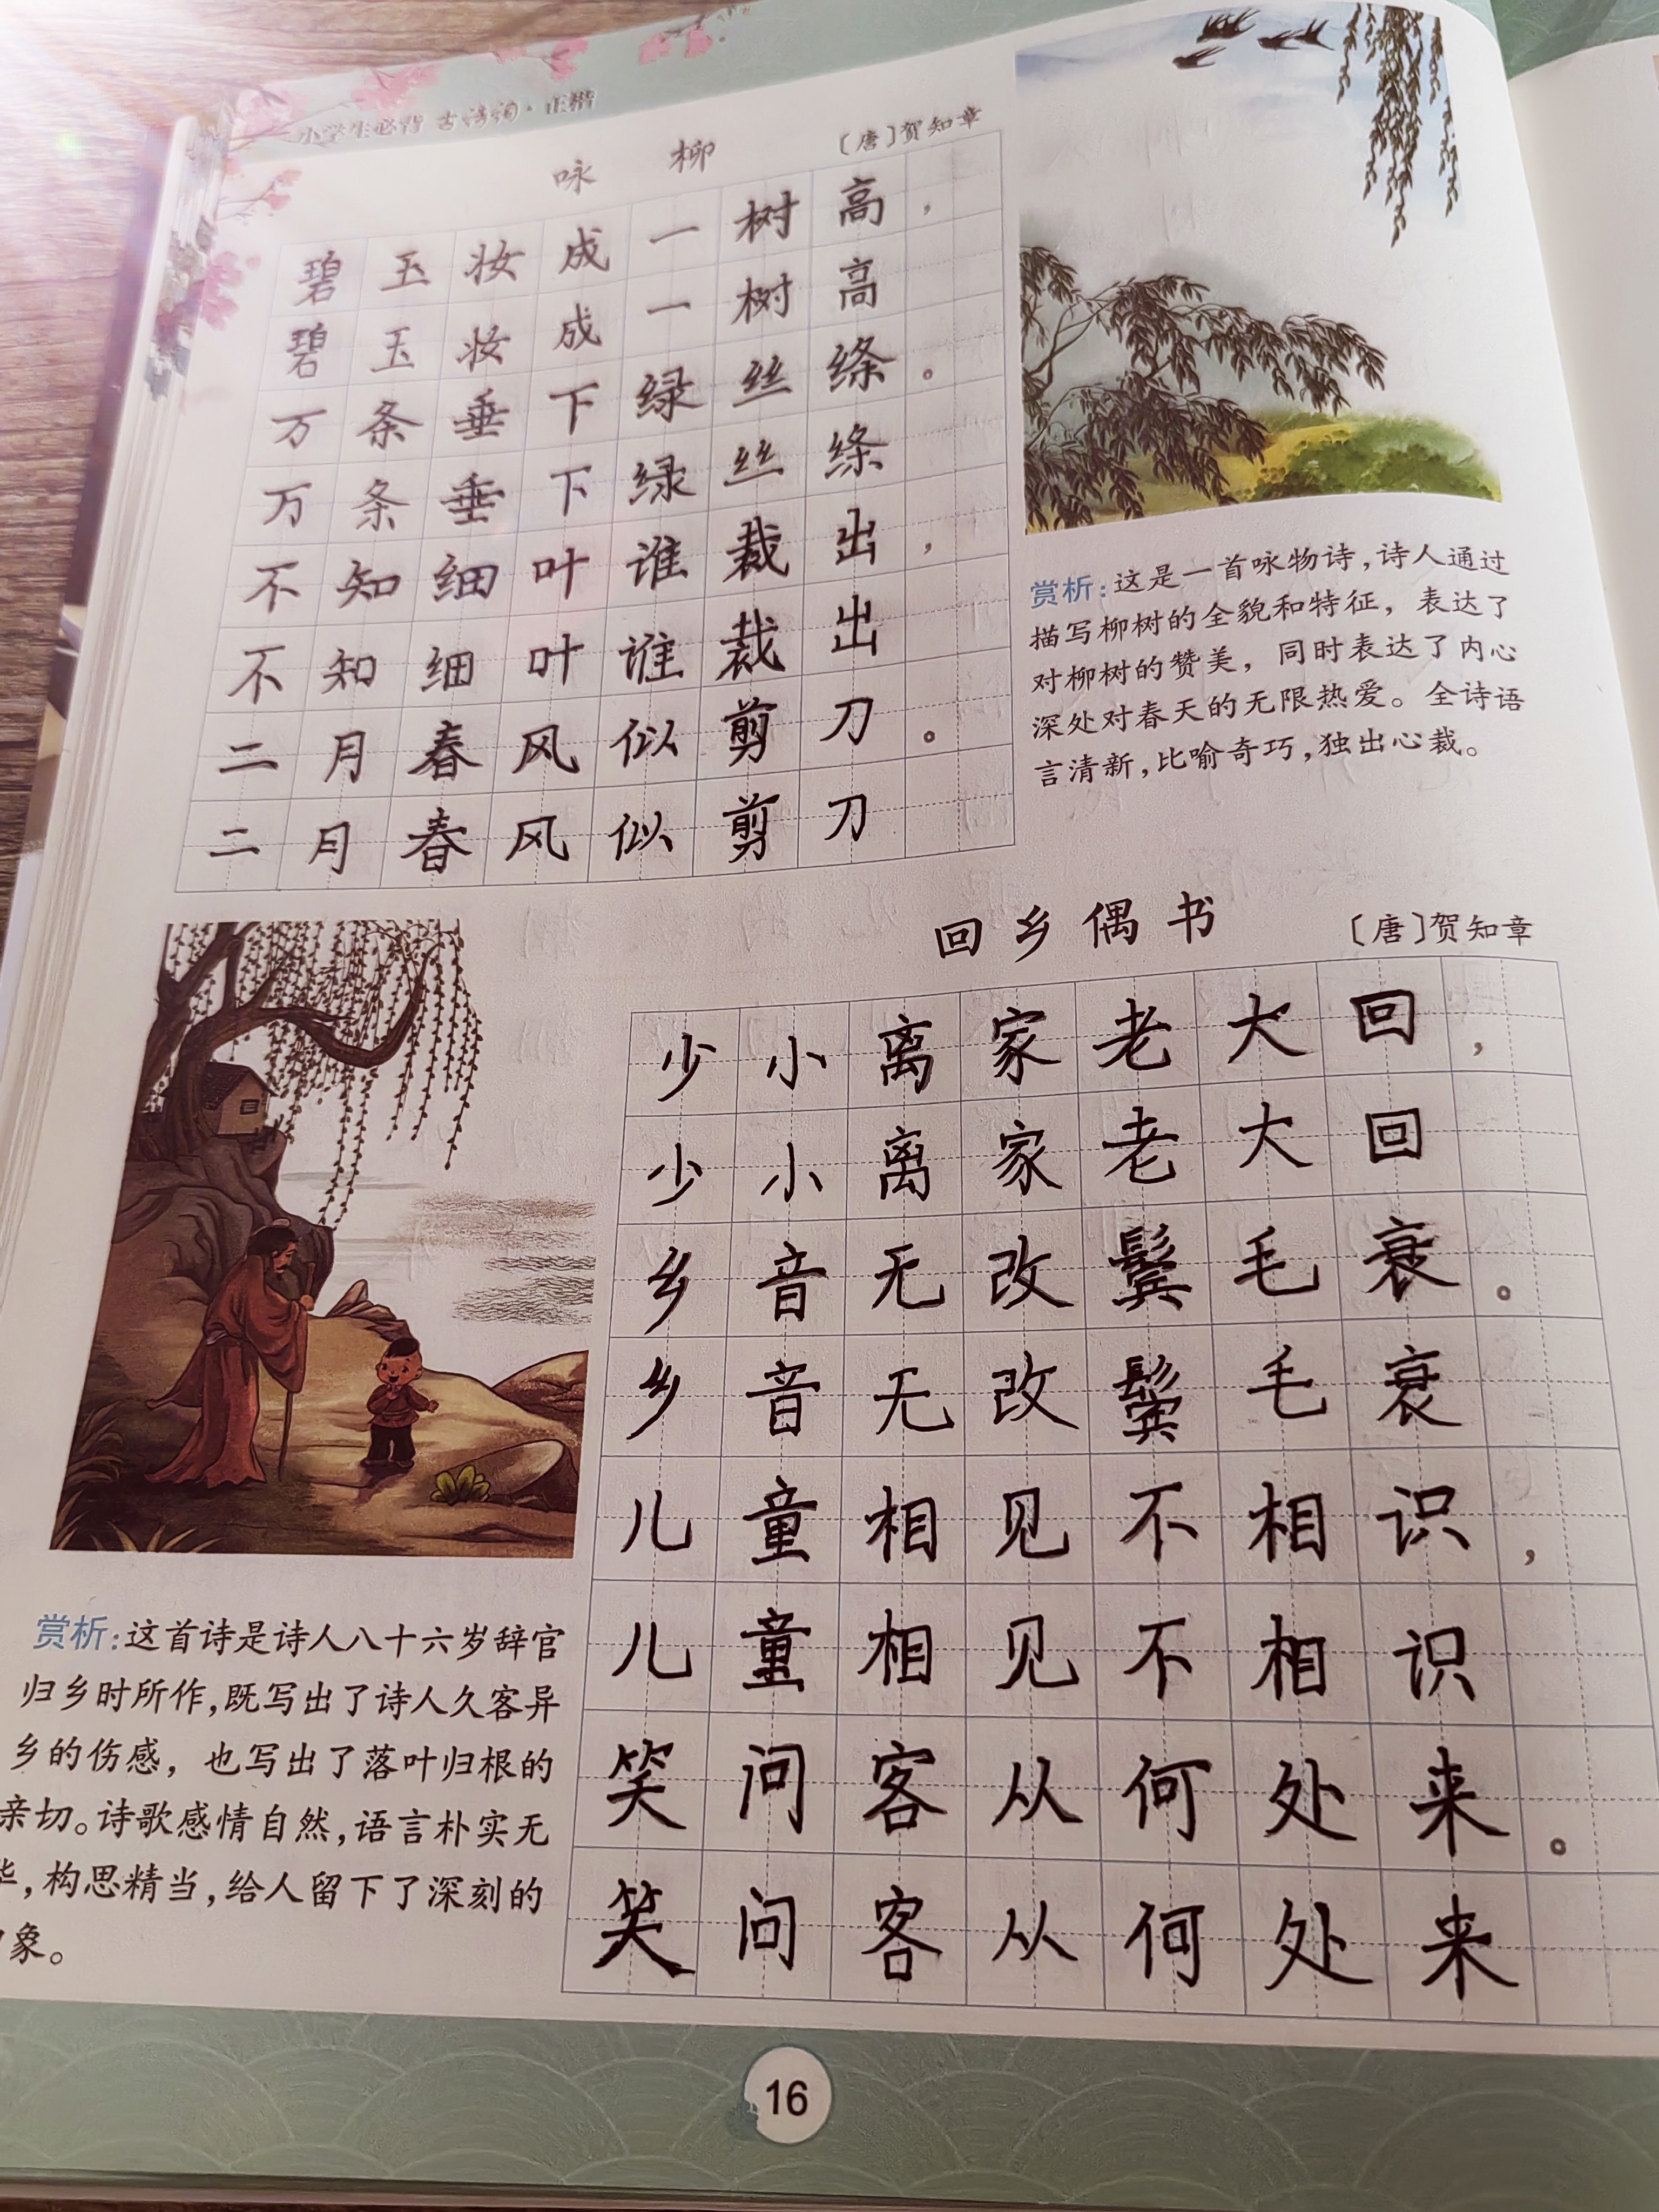 小学生必背 古诗词·正楷
咏 柳
〔唐〕贺知章
碧玉妆成一树高，
碧玉妆成一树高
万条垂下绿丝绦。
万条垂下绿丝绦
不知细叶谁裁出，
不知细叶谁裁出
二月春风似剪刀。
二月春风似剪刀
赏析：这是一首咏物诗，诗人通过
描写柳树的全貌和特征，表达了
对柳树的赞美，同时表达了内心
深处对春天的无限热爱。全诗语
言清新，比喻奇巧，独出心裁。
回乡偶书
〔唐〕贺知章
少小离家老大回，
少小离家老大回
乡音无改鬓毛衰。
乡音无改鬓毛衰
儿童相见不相识，
儿童相见不相识
笑问客从何处来。
笑问客从何处来
赏析：这首诗是诗人八十六岁辞官
归乡时所作，既写出了诗人久客异
乡的伤感，也写出了落叶归根的
亲切。诗歌感情自然，语言朴实无
华，构思精当，给人留下了深刻的
象。
16